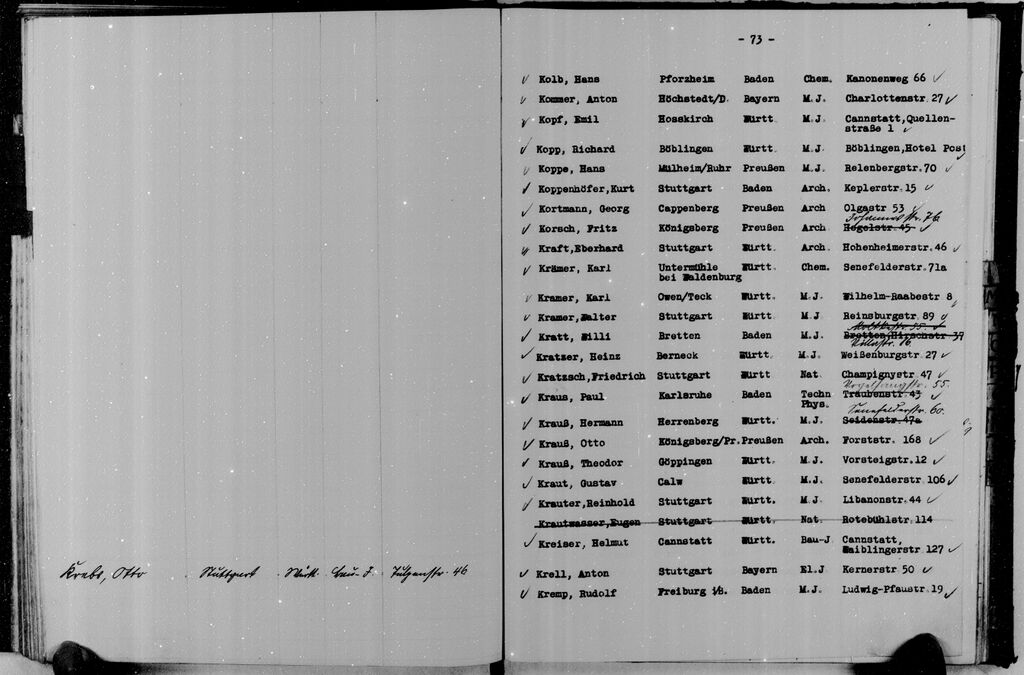 Krebs, Otto Stuttgart Württ. Bau-J. Tulpenstr. 46
- 73 -
Kolb, Hans Pforzheim Baden Chem. Kanonenweg 66
Kommer, Anton Höchstedt/D. Bayern M.J. Charlottenstr.27
Kopf, Emil Hosskirch Württ. M.J. Cannstatt,Quellen-
straße 1
Kopp, Richard Böblingen Württ. M.J. Böblingen,Hotel Post
Koppe, Hans Mülheim/Ruhr Preußen M.J. Relenbergstr.70
Koppenhöfer,Kurt Stuttgart Baden Arch. Keplerstr.15
Kortmann, Georg Cappenberg Preußen Arch Olgastr 53
Johannesstr. 76
Korsch, Fritz Königsberg Preußen Arch Hegelstr.45
Kraft,Eberhard Stuttgart Württ. Arch. Hohenheimerstr.46
Krämer, Karl Untermühle Württ. Chem. Senefelderstr.71a
bei Waldenburg
Kramer, Karl Owen/Teck Württ. M.J. Wilhelm-Raabestr 8
Kramer,Walter Stuttgart Württ. M.J. Reinsburgstr.89
Moltkestr. 55
Kratt, Willi Bretten Baden M.J. Bretten,Hirschstr 37
Kratzer, Heinz Berneck Württ. M.J. Weißenburgstr.27
Kratzsch,Friedrich Stuttgart Württ Nat. Champignystr 47
Vogelsangstr. 55.
Kraus, Paul Karlsruhe Baden Techn Traubenstr.43
Phys.
Senefelderstr. 60.
Krauß, Hermann Herrenberg Württ. M.J. Seidenstr.47a
Krauß, Otto Königsberg/Pr. Preußen Arch. Forststr. 168
Krauß, Theodor Göppingen Württ. M.J. Vorsteigstr.12
Kraut, Gustav Calw Württ. M.J. Senefelderstr 106
Krauter,Reinhold Stuttgart Württ. M.J. Libanonstr.44
Krautwasser,Eugen Stuttgart Württ. Nat. Rotebühlstr.114
Kreiser, Helmut Cannstatt Württ. Bau-J Cannstatt,
Waiblingerstr 127
Krell, Anton Stuttgart Bayern El.J Kernerstr 50
Kremp, Rudolf Freiburg i/B. Baden M.J. Ludwig-Pfaustr.19